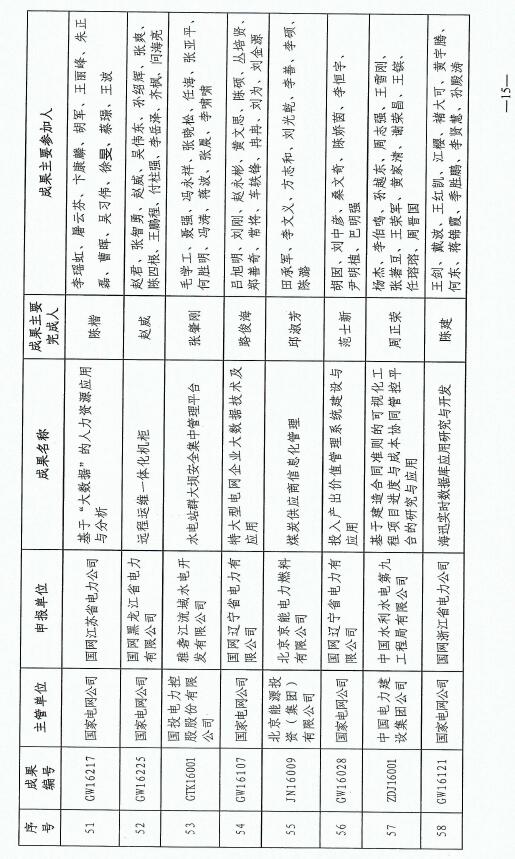 序号
成果编号
主管单位
申报单位
成果名称
成果主要完成人
成果主要参加人
51
GW16217
国家电网公司
国网江苏省电力公司
基于“大数据”的人力资源应用
与分析
陈楷
李瑶虹、屠云芬、卞康麟、胡军、王丽峰、朱正
磊、曹晖、吴习伟、徐旻、蔡璟、王波
52
GW16225
国家电网公司
国网黑龙江省电力
有限公司
远程运维一体化机柜
赵威
赵君、张智勇、赵威、吴伟东、孙绍辉、张爽、
陈四根、王鹏程、付柱强、李岳泽、齐枫、问海亮
53
GTK16001
国投电力控
股股份有限
公司
雅砻江流域水电开
发有限公司
水电站群大坝安全集中管理平台
张肇刚
毛学工、聂强、冯永祥、张晓松、任海、张亚平、
何胜明、冯涛、蒋波、张晨、李啸啸
54
GW16107
国家电网公司
国网辽宁省电力有
限公司
特大型电网企业大数据技术及
应用
路俊海
吕旭明、刘刚、赵永彬、黄文思、陈硕、丛培贤、
郑善奇、常将、车轶锋、冉冉、刘为、刘金源
55
JN16009
北京能源投
资（集团）
有限公司
北京京能电力燃料
有限公司
煤炭供应商信息化管理
邱淑芳
田承军、李文义、方志和、刘光乾、李善、李硕、
陈潞
56
GW16028
国家电网公司
国网辽宁省电力有
限公司
投入产出价值管理系统建设与
应用
范士新
胡因、刘中彦、桑文奇、陈娇茵、李恒宇、
尹明植、巴明强
57
ZDJ16001
中国电力建
设集团公司
中国水利水电第九
工程局有限公司
基于建造合同准则的可视化工
程项目进度与成本协同管控平
台的研究与应用
周正荣
杨杰、李伯鸣、孙越东、周志强、王雪刚、
张著豆、王荣军、黄家清、谢荣昌、王镔、
任瑢瑢、周晋国
58
GW16121
国家电网公司
国网浙江省电力公司
海迅实时数据库应用研究与开发
陈建
王剑、戴波、王红凯、江樱、褚大可、黄宇腾、
何东、蒋锦霞、李胜鹏、李贤慧、孙殿涛
—15—